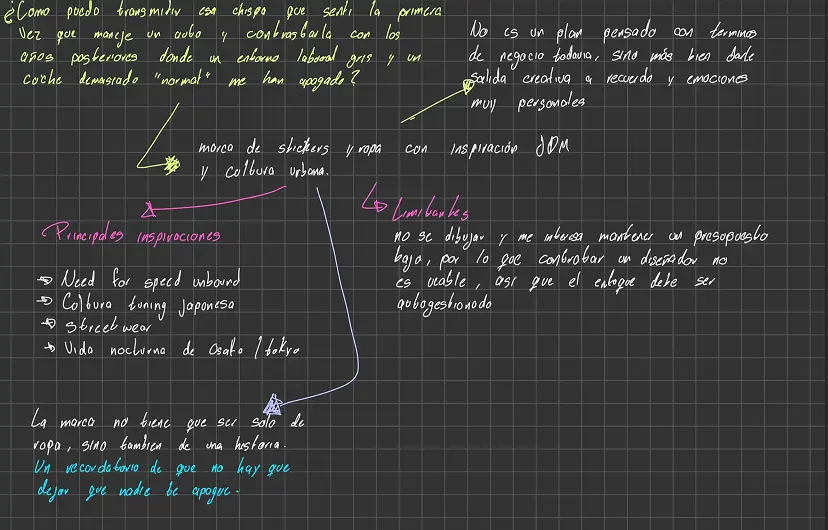 ¿Como puedo transmitir esa chispa que senti la primera
vez que maneje un auto y contrastarla con los
años posteriores donde un entorno laboral gris y un
coche demasiado "normal" me han apagado?
No es un plan pensado con terminos
de negocio todavia, sino más bien darle
salida creativa a recuerdo y emociones
muy personales
marca de stickers y ropa con inspiración JDM
y cultura urbana.
Principales inspiraciones
Need for speed unbound
Cultura tuning japonesa
street wear
Vida nocturna de Osaka / tokyo
Limitantes
no se dibujar y me interesa mantener un presupuesto
bajo, por lo que contratar un diseñador no
es viable, asi que el enfoque debe ser
autogestionado
La marca no tiene que ser solo de
ropa, sino tambien de una historia.
Un recordatorio de que no hay que
dejar que nadie te apague.